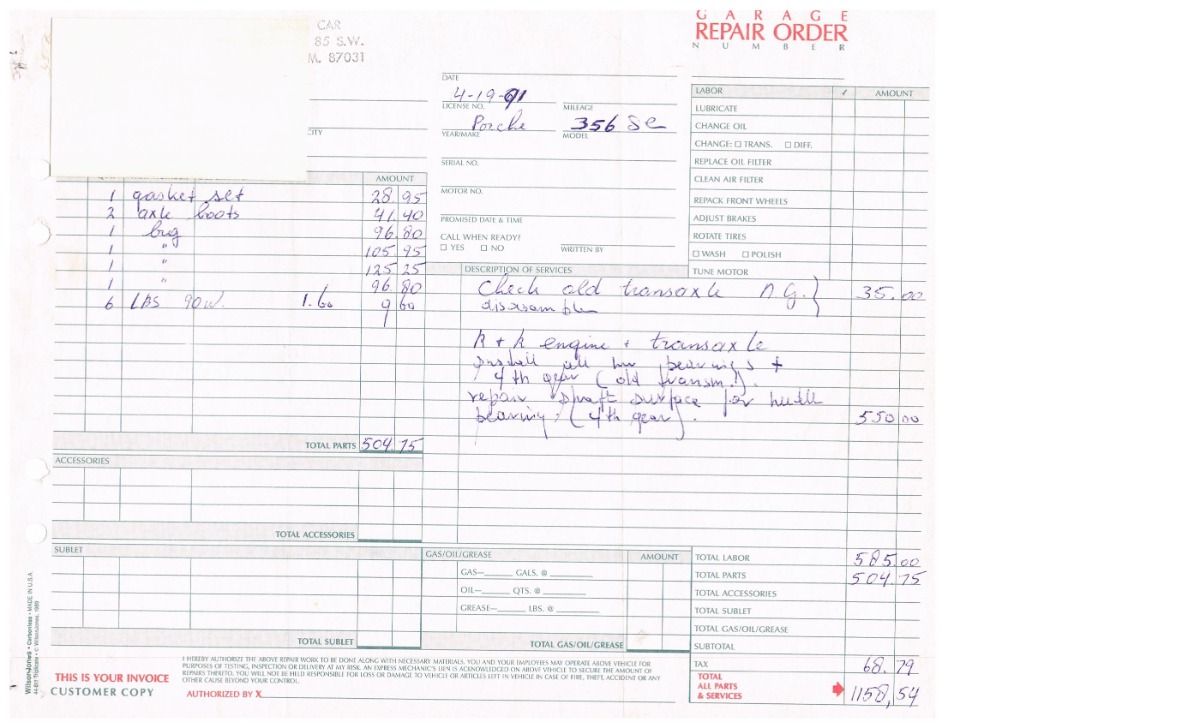 CAR
85 S.W.
M. 87031
GARAGE
REPAIR ORDER
NUMBER
DATE
4-19-91
LICENSE NO.
MILEAGE
Porche
356 SC
YEAR/MAKE
MODEL
CITY
SERIAL NO.
MOTOR NO.
PROMISED DATE & TIME
CALL WHEN READY?
☐ YES ☐ NO
WRITTEN BY
LABOR ✓ AMOUNT
LUBRICATE
CHANGE OIL
CHANGE: ☐ TRANS. ☐ DIFF.
REPLACE OIL FILTER
CLEAN AIR FILTER
REPACK FRONT WHEELS
ADJUST BRAKES
ROTATE TIRES
☐ WASH ☐ POLISH
TUNE MOTOR
AMOUNT
1 gasket set 28 95
2 axle boots 41.40
1 brg 96.80
1 " 105 95
1 " 125 25
1 " 96 80
6 LBS 90W. 1.60 9 60
TOTAL PARTS 504 75
DESCRIPTION OF SERVICES
Check old transaxle N.G. 35.00
R + R engine + transaxle
install all bearings +
4th gear (old transm.).
repair shaft surface for
bearing, (4th gear). 550 00
ACCESSORIES
TOTAL ACCESSORIES
SUBLET
TOTAL SUBLET
GAS/OIL/GREASE AMOUNT
GAS—______ GALS. @ ________
OIL—______ QTS. @ ________
GREASE—______ LBS. @ ________
TOTAL GAS/OIL/GREASE
TOTAL LABOR 585.00
TOTAL PARTS 504 75
TOTAL ACCESSORIES
TOTAL SUBLET
TOTAL GAS/OIL/GREASE
SUBTOTAL
TAX 68.79
TOTAL
ALL PARTS
& SERVICES 1158,54
I HEREBY AUTHORIZE THE ABOVE REPAIR WORK TO BE DONE ALONG WITH NECESSARY MATERIALS. YOU AND YOUR EMPLOYEES MAY OPERATE ABOVE VEHICLE FOR
PURPOSES OF TESTING, INSPECTION OR DELIVERY AT MY RISK. AN EXPRESS MECHANIC'S LIEN IS ACKNOWLEDGED ON ABOVE VEHICLE TO SECURE THE AMOUNT OF
REPAIRS THERETO. YOU WILL NOT BE HELD RESPONSIBLE FOR LOSS OR DAMAGE TO VEHICLE OR ARTICLES LEFT IN VEHICLE IN CASE OF FIRE, THEFT, ACCIDENT OR ANY
OTHER CAUSE BEYOND YOUR CONTROL.
AUTHORIZED BY X
THIS IS YOUR INVOICE
CUSTOMER COPY
Wilson-Jones • Carbonless • MADE IN U.S.A.